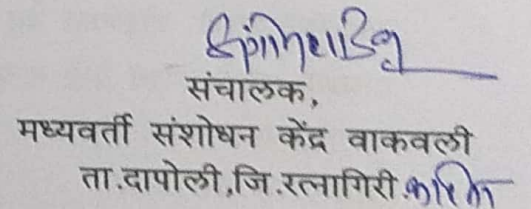 संचालक,
मध्यवर्ती संशोधन केंद्र वाकवली
ता.दापोली,जि.रत्नागिरी.करिता